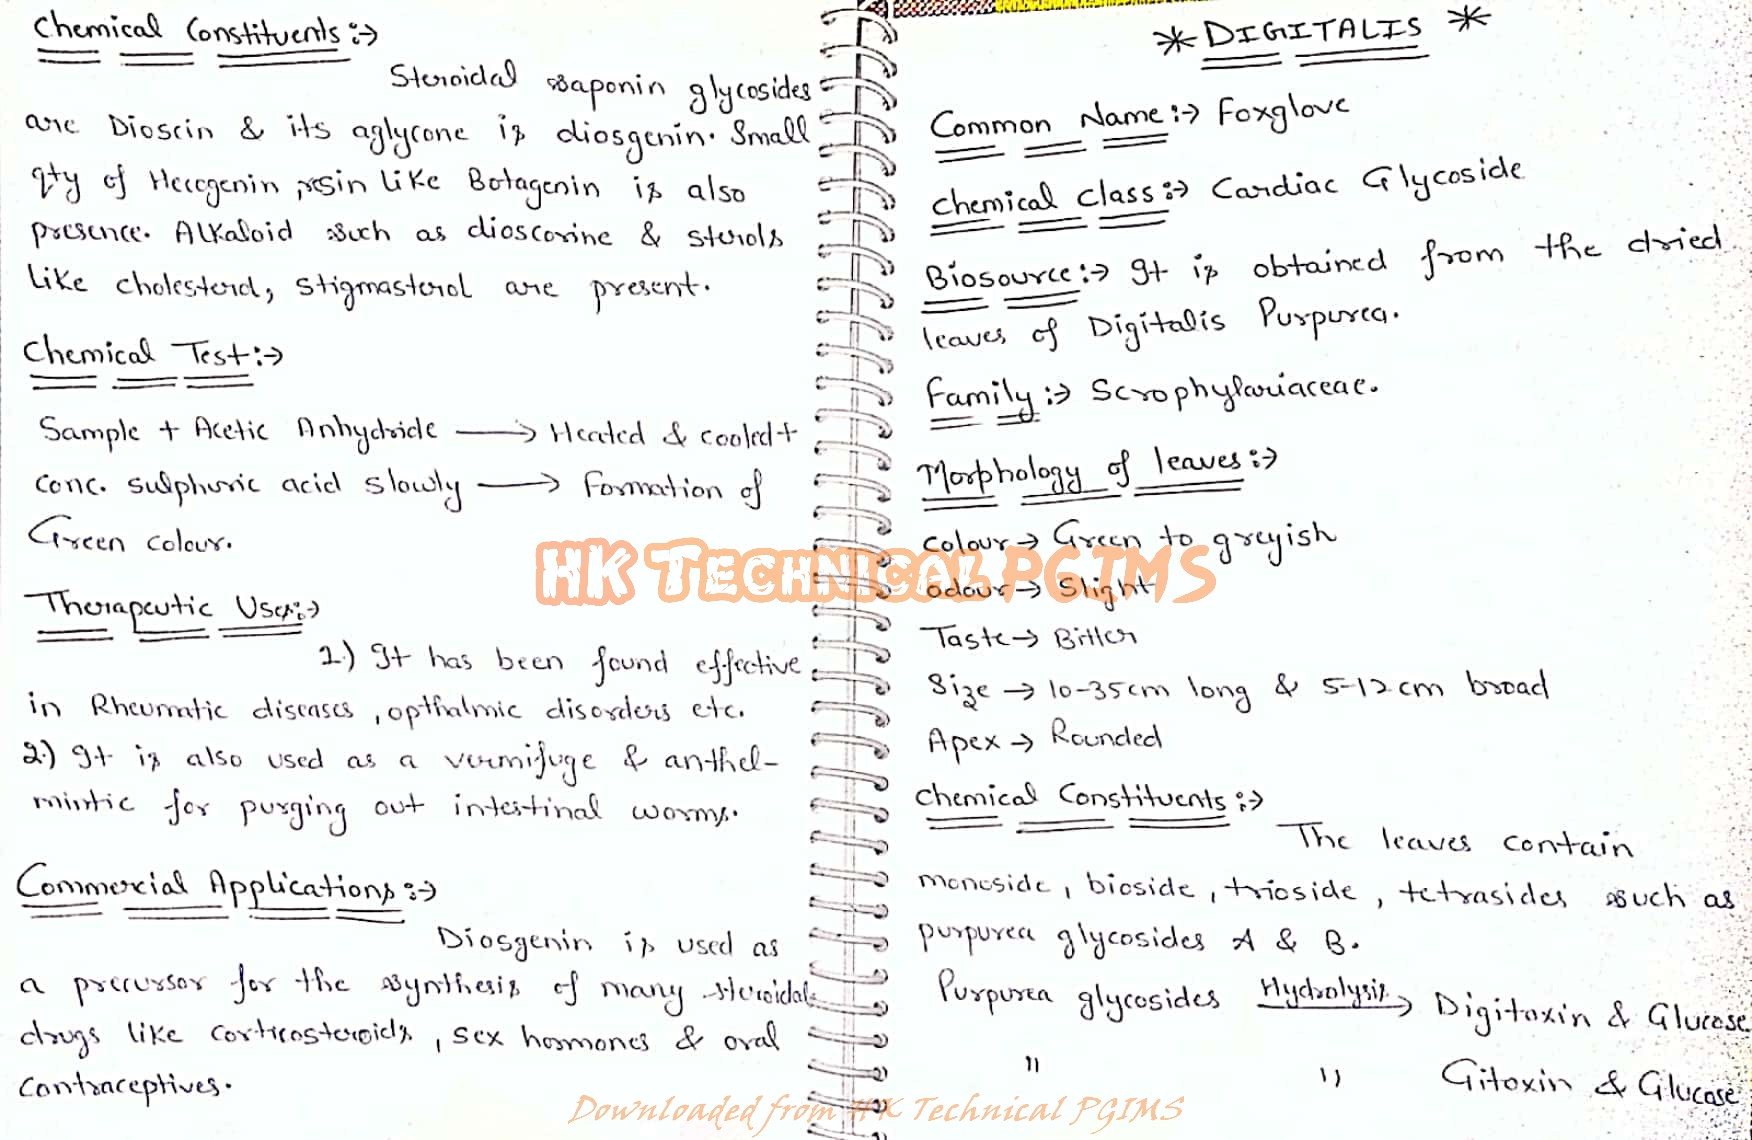 Chemical Constituents :->
Steroidal saponin glycosides
are Dioscin & its aglycone is diosgenin. Small
qty of Hecogenin, resin like Botagenin is also
presence. Alkaloid such as dioscorine & sterols
like cholesterol, stigmasterol are present.
Chemical Test :->
Sample + Acetic Anhydride → Heated & cooled +
conc. sulphuric acid slowly → Formation of
Green colour.
Therapeutic Uses :->
1.) It has been found effective
in Rheumatic diseases, opthalmic disorders etc.
2.) It is also used as a vermifuge & anthel-
mintic for purging out intestinal worms.
Commercial Applications :->
Diosgenin is used as
a precursor for the synthesis of many steroidal
drugs like corticosteroids, sex hormones & oral
contraceptives.
* DIGITALIS *
Common Name :-> Foxglove
Chemical Class :-> Cardiac Glycoside
Biosource :-> It is obtained from the dried
leaves of Digitalis Purpurea.
Family :-> Scrophylariaceae.
Morphology of leaves :->
Colour → Green to greyish
odour → Slight
Taste → Bitter
Size → 10-35cm long & 5-12cm broad
Apex → Rounded
Chemical Constituents :->
The leaves contain
monoside, bioside, trioside, tetrasides such as
purpurea glycosides A & B.
Purpurea glycosides Hydrolysis → Digitoxin & Glucose
" " Gitoxin & Glucose
HK TECHNICAL PGIMS
Downloaded from HK Technical PGIMS